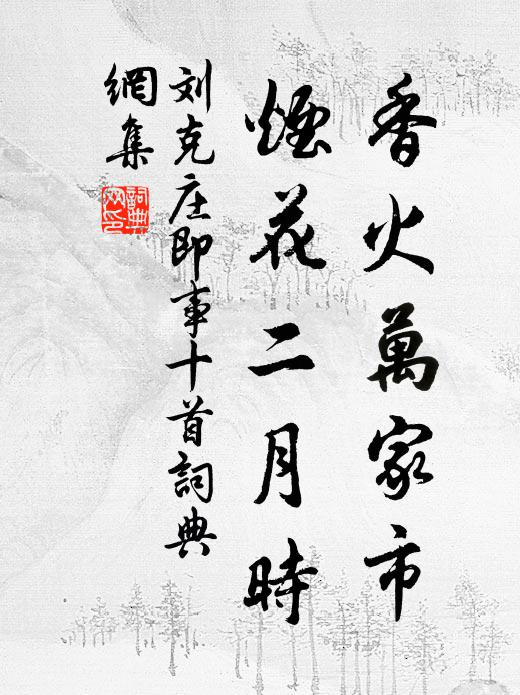 香火萬家市
煙花二月時
刘克庄即事十首詞典
網集
詞典网印